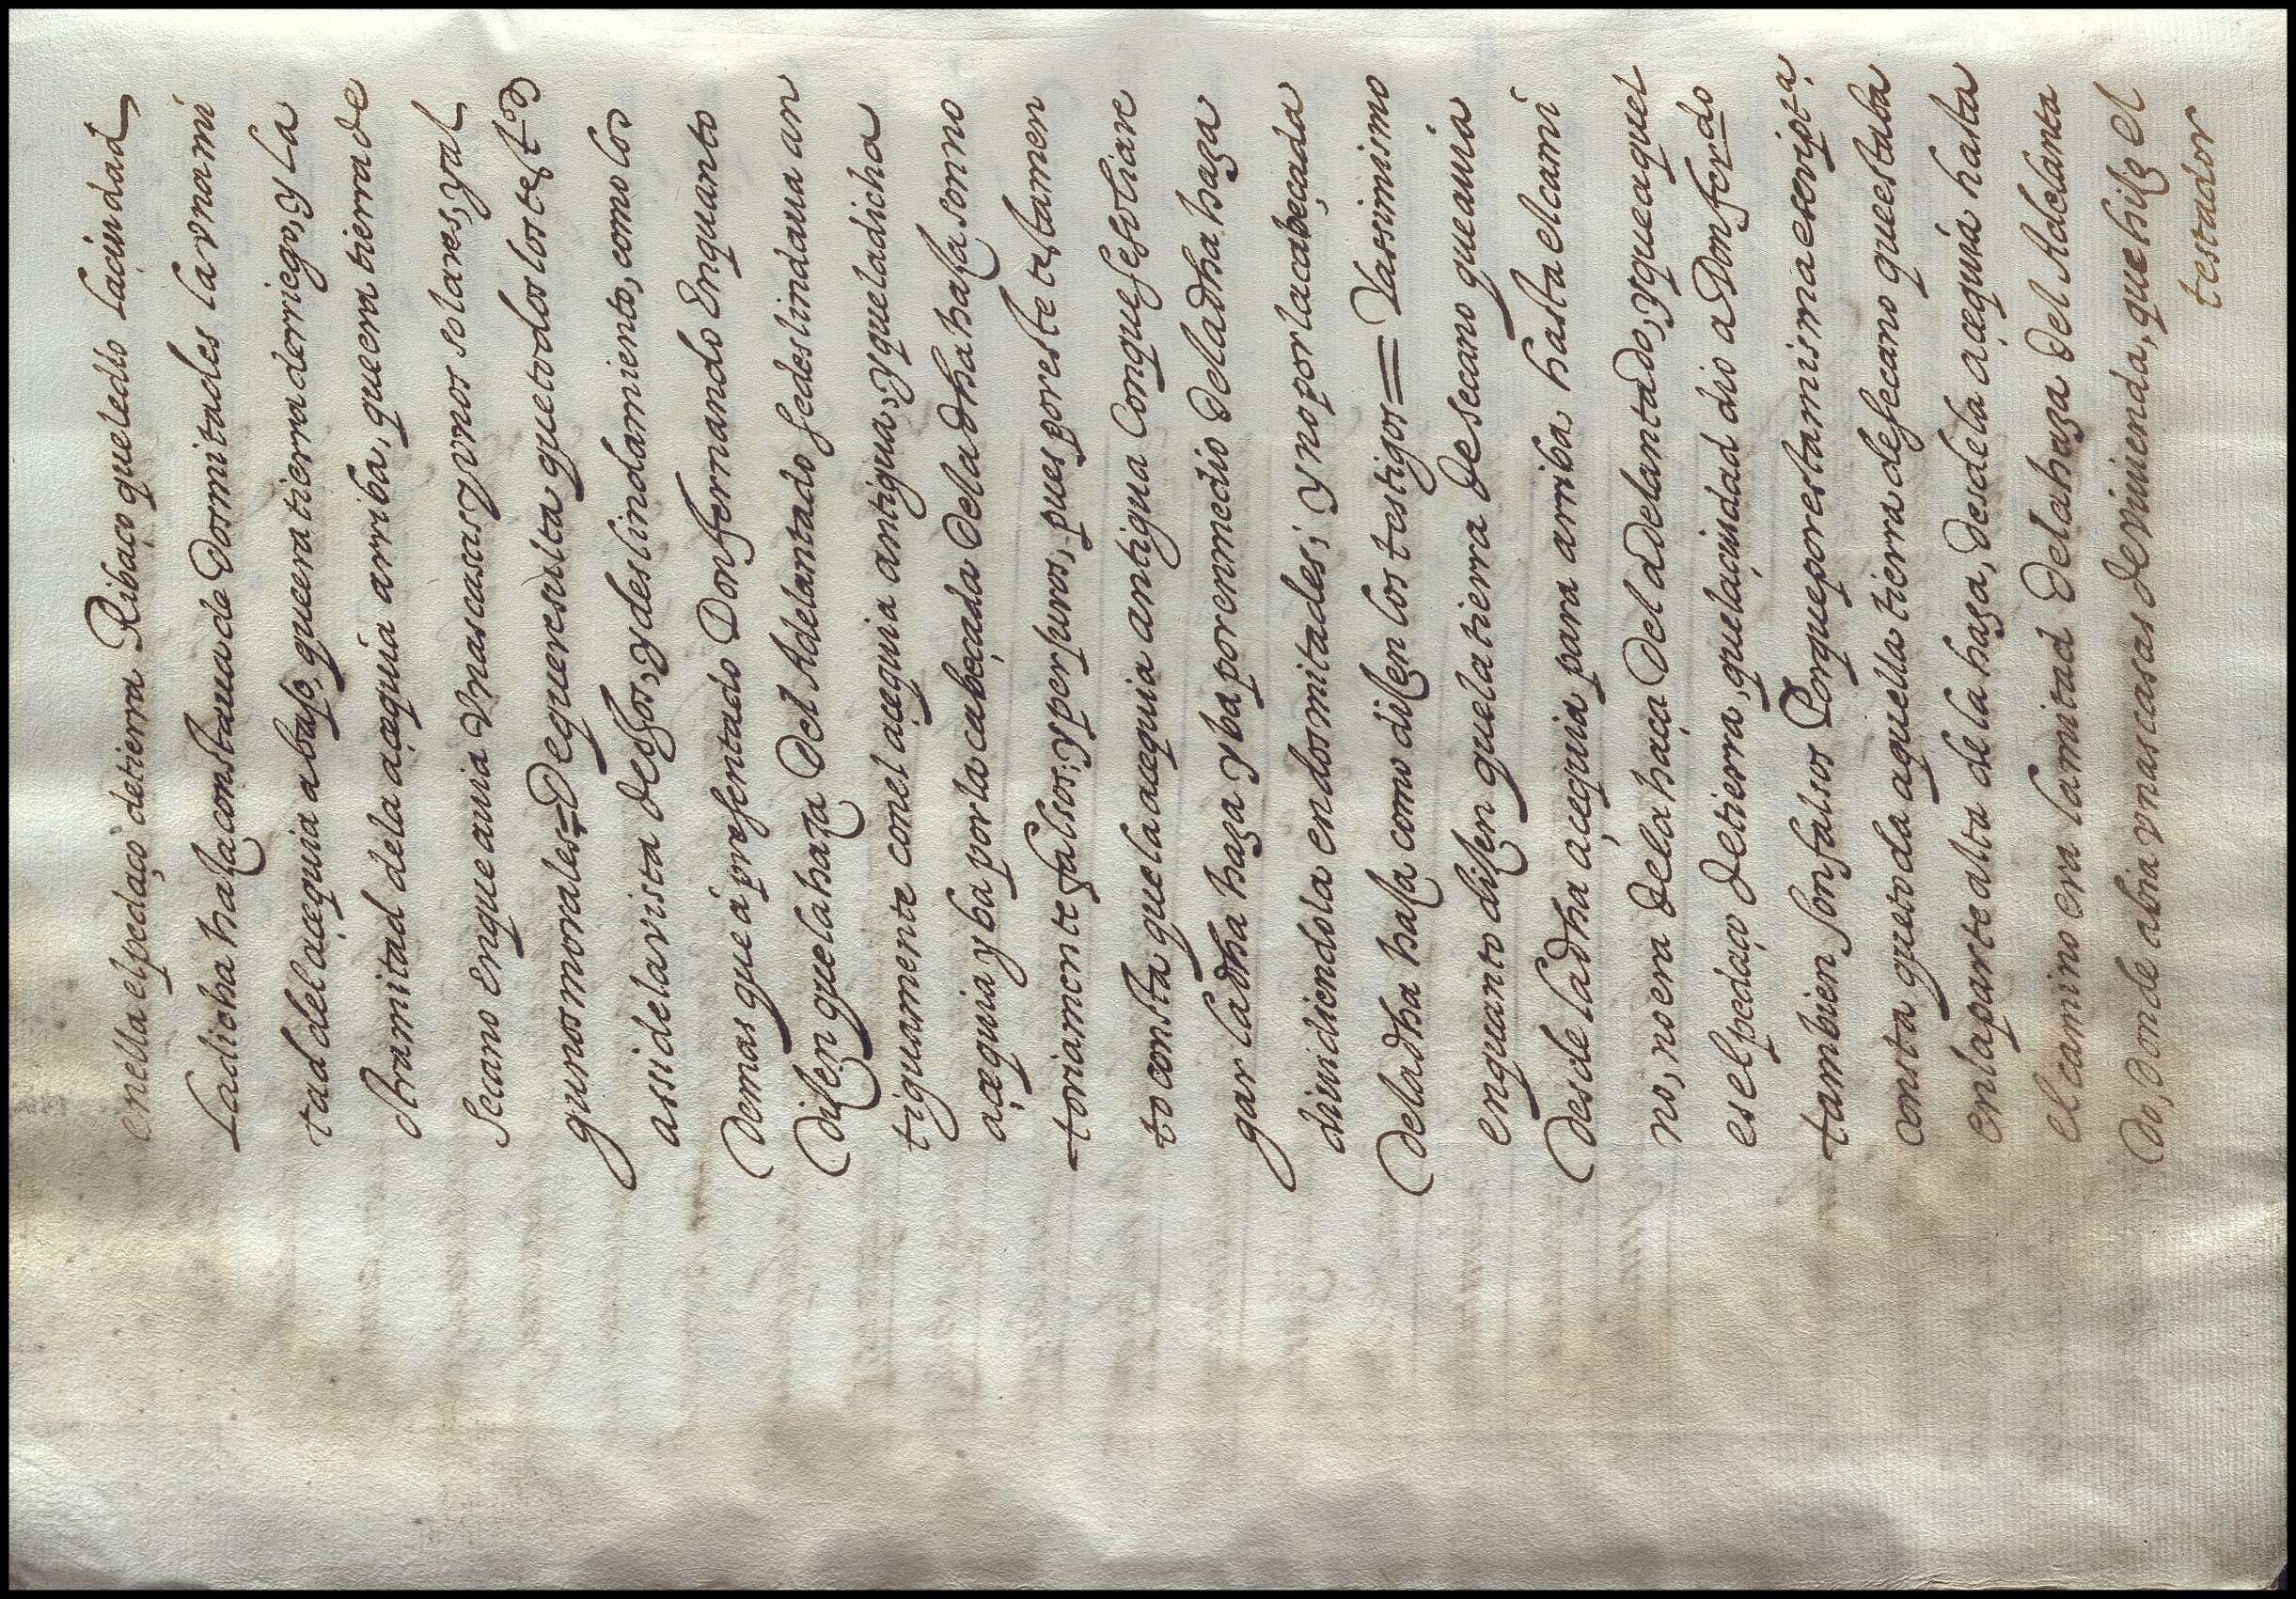 en ella el pedaço de tierra Ribaço que le dio la çiudad
La dicha haza constaua de Dos mitades la vna mi
tad del açequia abaxo, que era tierra de rriego, y la
otra mitad de la açequia arriba, que era tierra de
secano en que auia vnas casas y vnos solares, y al
gunos morales = De que resulta que todos los test^os
assi de la vista de ojos, y deslindamiento, como los
demas que á presentado Don fernando En quanto
dizen que la haza Del Adelantado se deslindaua an
tiguamente con el açequia antigua, y que la dicha
açequia yba por la cabeçada De la dha haza son no
toriamente falsos, y perjuros, pues por este testamen
to consta que la açequia antigua Con que se solia re
gar la dha haza yba por en medio De la dha haza
diuidiendola en dos mitades, y no por la cabeçada
de la dha haza como dizen los testigos = Y assimismo
en quanto dizen que la tierra De secano que auia
desde la dha açequia para arriba hasta el cami
no, no era de la haça Del adelantado, y que aquel
es el pedaço de tierra, que la çiudad dio a Don fer^do
tambien son falsos Porque por esta misma escript^a
consta que toda aquella tierra de secano que estaba
en la parte alta de la haza, desde la açequia hasta
el camino era la mitad De la haza Del Adelanta
do, donde abia vnas casas de viuienda, que hizo el
testador